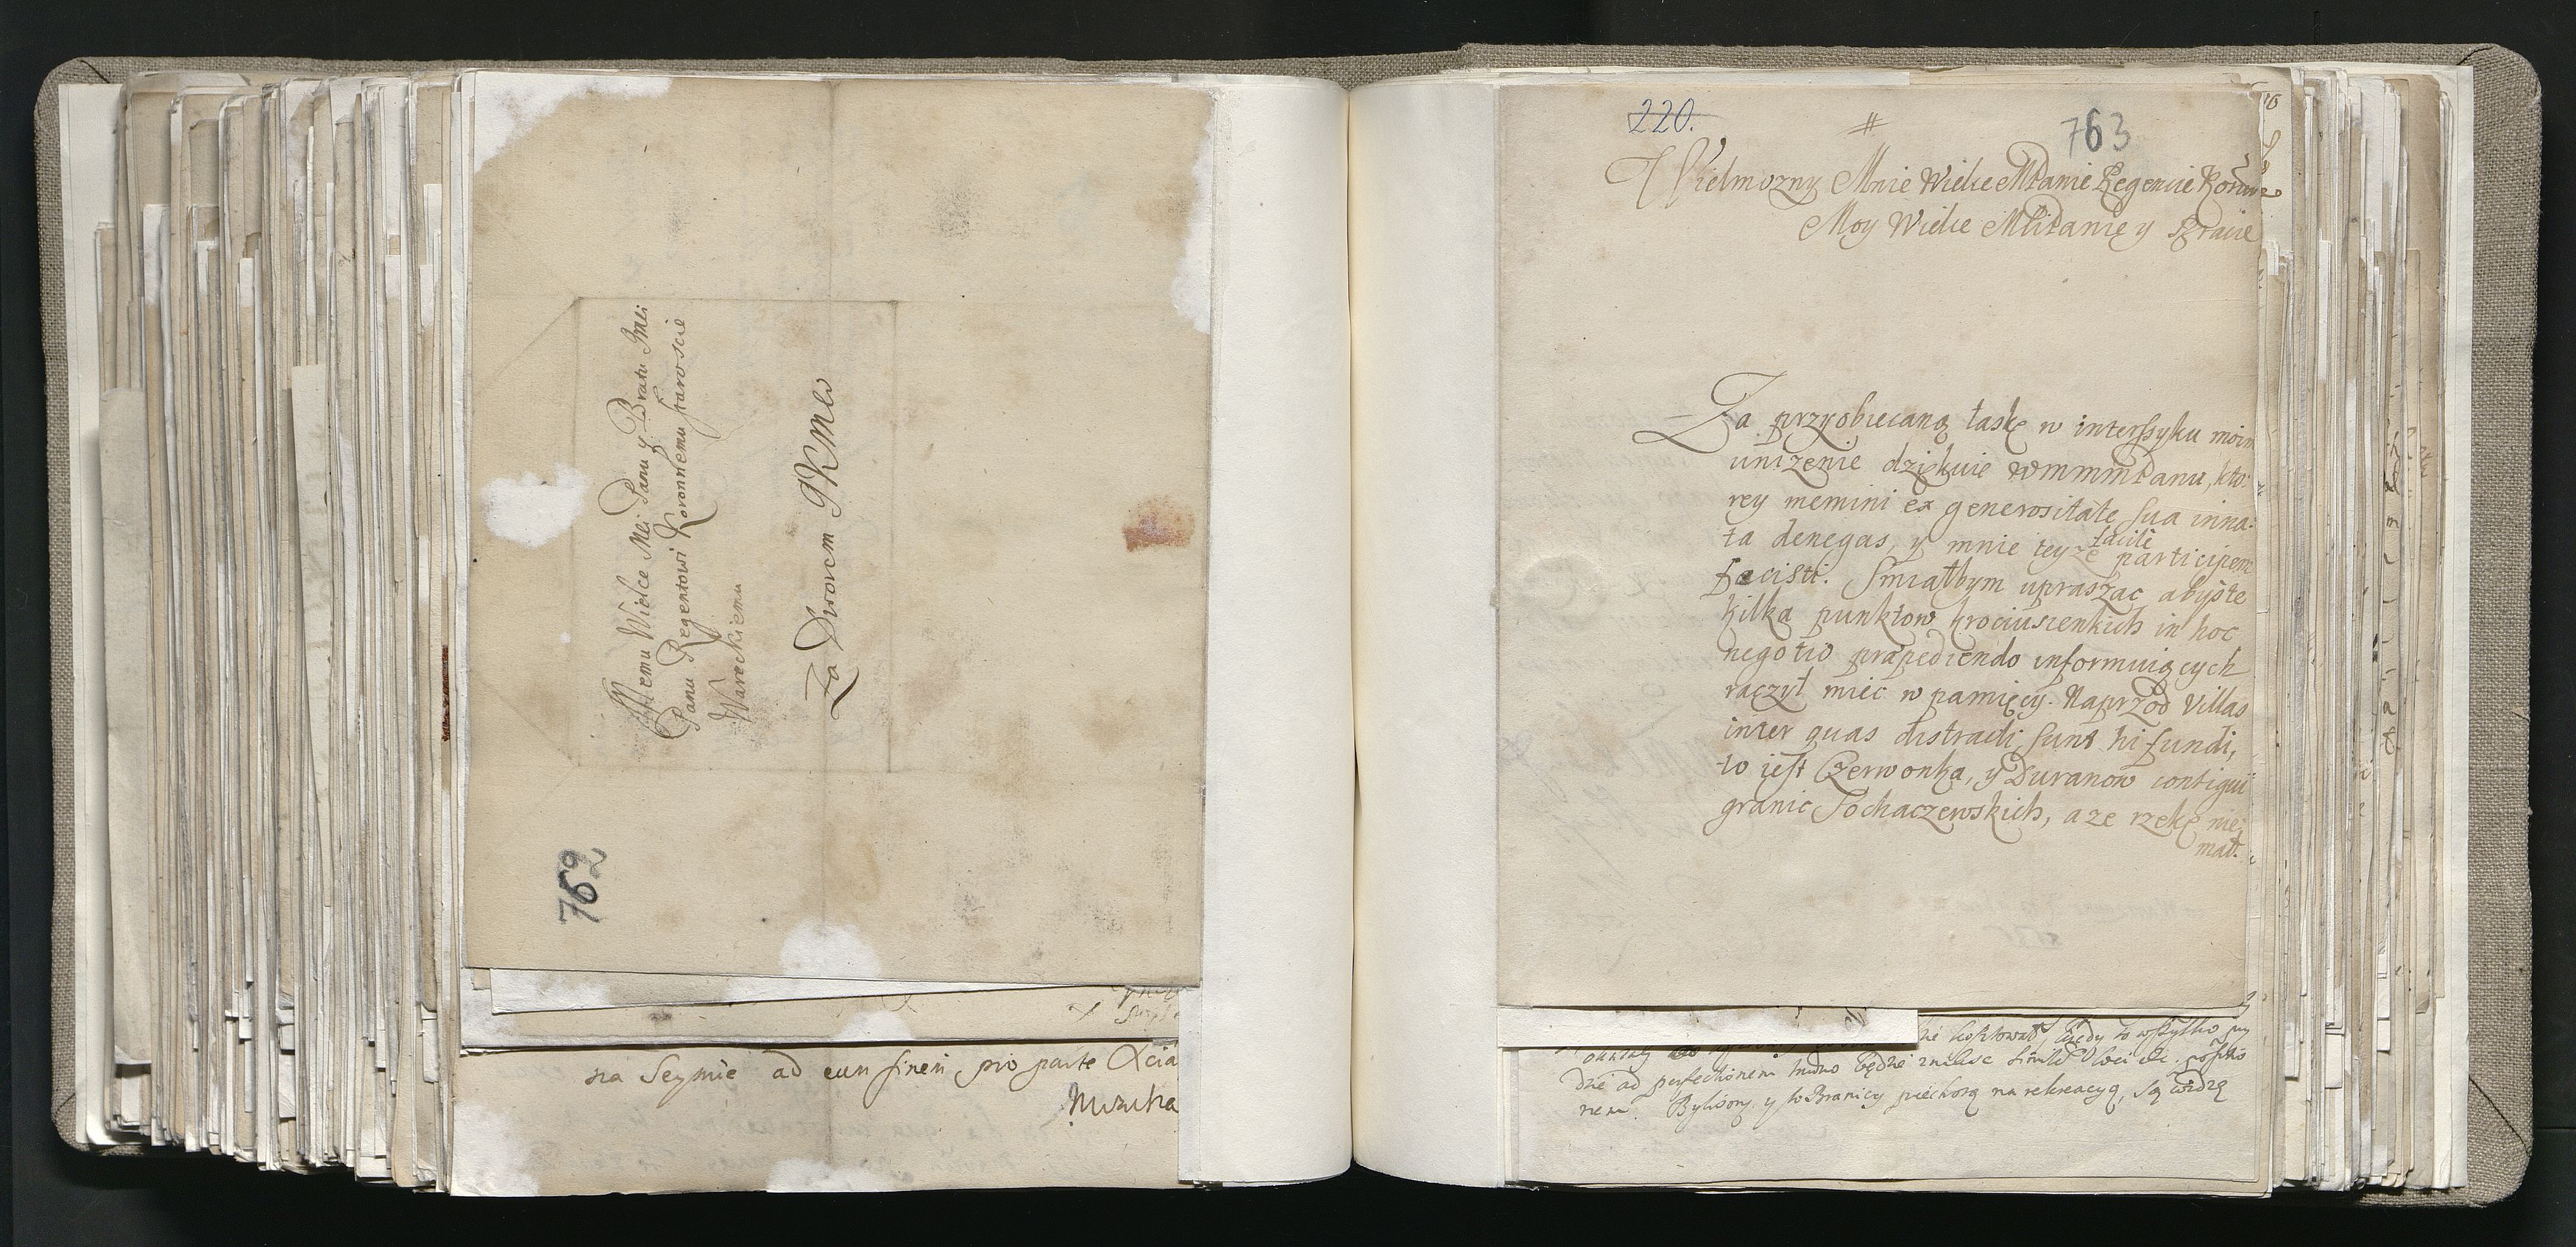 Memu Wielce Mci Panu y Bratu JMci
Panu Regentowi Koronnemu staroscie
Wareckiemu
Za Dworem JKMci
762
na Seymie ad eum finem pro parte Xcia
220.
763
Wielmozny Mnie Wielce MPanie Regencie Koronny
Moy Wielce MPanie y Bracie
Za przyobiecaną łaskę w interssyku moim
unizenie dziękuie WMMMPanu, kto:
rey memini ex generositate sua inna:
ta denegas, y mnie teyze facile participem
fecisti. Smiałbym upraszac abyste
kilka punktow krociusienkich in hoc
negotio præpediendo informuiących
raczył miec w pamięcy. Naprzod Villas
inter quas distracti sunt hi fundi,
to iest Czerwonka, y Duranow contigui
granic Sochaczewskich, a ze rzekę nie
mał.
kosztował, kiedy to wszytko
dne ad perfectionem trudno będzie znalesc simile
nem. Bylismy y w Branicy piechotą na rekreacyą,